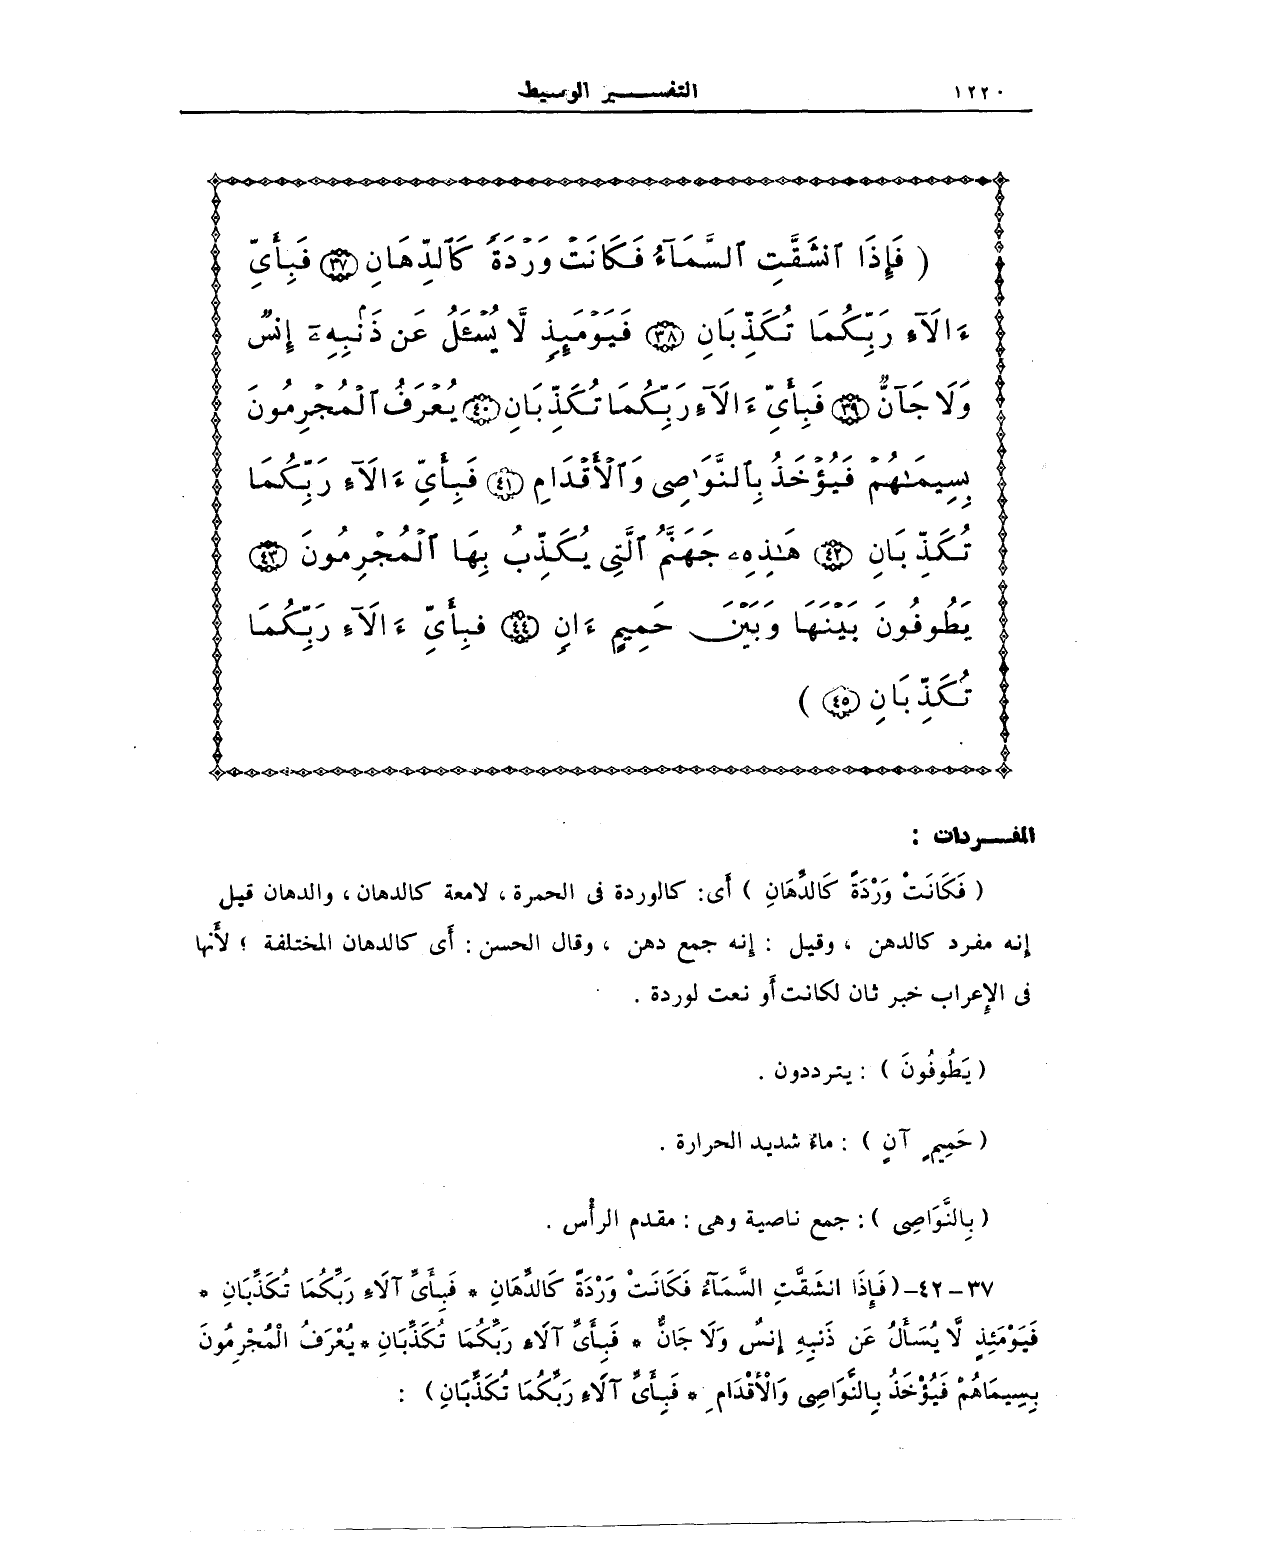 ١٢٢٠ التفسير الوسيط
( فَإِذَا ٱنشَقَّتِ ٱلسَّمَآءُ فَكَانَتْ وَرْدَةً كَٱلدِّهَانِ ٣٧ فَبِأَيِّ
ءَالَآءِ رَبِّكُمَا تُكَذِّبَانِ ٣٨ فَيَوْمَئِذٍ لَّا يُسْـَٔلُ عَن ذَنۢبِهِۦٓ إِنسٌ
وَلَا جَآنٌّ ٣٩ فَبِأَيِّ ءَالَآءِ رَبِّكُمَا تُكَذِّبَانِ ٤٠ يُعْرَفُ ٱلْمُجْرِمُونَ
بِسِيمَـٰهُمْ فَيُؤْخَذُ بِٱلنَّوَٰصِى وَٱلْأَقْدَامِ ٤١ فَبِأَيِّ ءَالَآءِ رَبِّكُمَا
تُكَذِّبَانِ ٤٢ هَـٰذِهِۦ جَهَنَّمُ ٱلَّتِى يُكَذِّبُ بِهَا ٱلْمُجْرِمُونَ ٤٣
يَطُوفُونَ بَيْنَهَا وَبَيْنَ حَمِيمٍ ءَانٍ ٤٤ فَبِأَيِّ ءَالَآءِ رَبِّكُمَا
تُكَذِّبَانِ ٤٥ )
المفـــردات :
( فَكَانَتْ وَرْدَةً كَالدِّهَانِ ) أَى: كالوردة فى الحمرة ، لامعة كالدهان ، والدهان قيل
إنه مفرد كالدهن ، وقيل : إنه جمع دهن ، وقال الحسن : أَى كالدهان المختلفة ؛ لأَنها
فى الإِعراب خبر ثان لكانت أَو نعت لوردة .
( يَطُوفُونَ ) : يترددون .
( حَمِيمٍ آنٍ ) : ماءٌ شديد الحرارة .
( بِالنَّوَاصِى ) : جمع ناصية وهى : مقدم الرأْس .
٣٧ – ٤٢–( فَإِذَا انشَقَّتِ السَّمَآءُ فَكَانَتْ وَرْدَةً كَالدِّهَانِ * فَبِأَىِّ آلَاءِ رَبِّكُمَا تُكَذِّبَانِ *
فَيَوْمَئِذٍ لَّا يُسْأَلُ عَن ذَنبِهِ إِنسٌ وَلَا جَانٌّ * فَبِأَىِّ آلَاءِ رَبِّكُمَا تُكَذِّبَانِ * يُعْرَفُ الْمُجْرِمُونَ
بِسِيمَاهُمْ فَيُؤْخَذُ بِالنَّوَاصِى وَالْأَقْدَامِ * فَبِأَىِّ آلَاءِ رَبِّكُمَا تُكَذِّبَانِ ) :